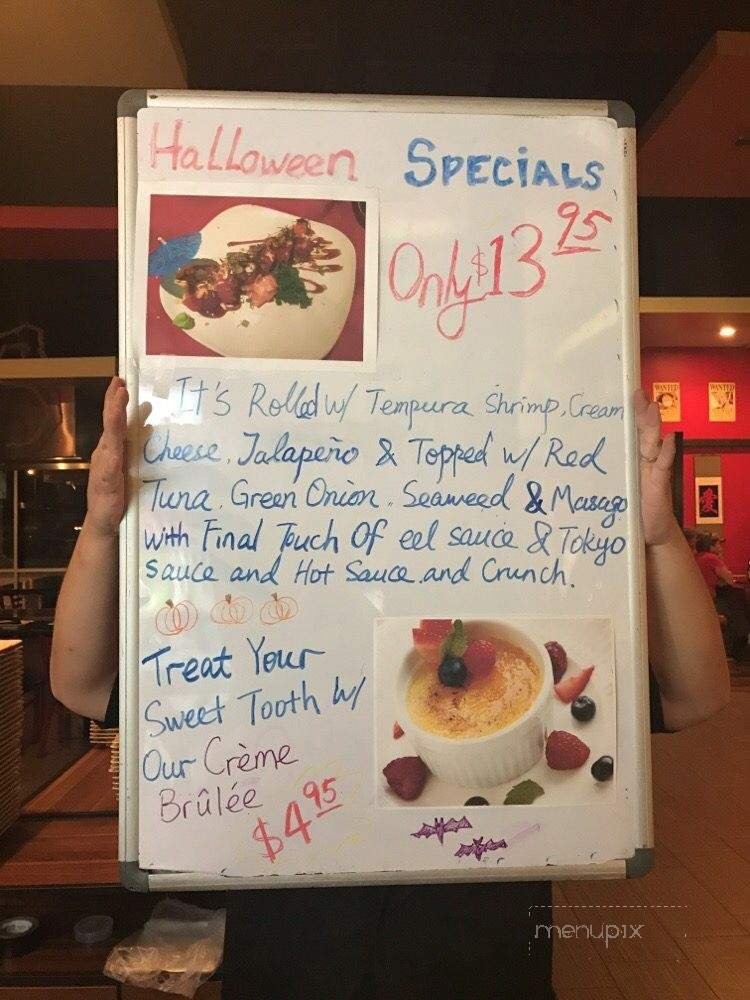 HaLLoween SPECiALS
Only $13 95
It's Rolled w/ Tempura Shrimp, Cream
Cheese, Jalapeño & Topped w/ Red
Tuna, Green Onion, Seaweed & Masago
with Final Touch Of eel sauce & Tokyo
sauce and Hot Sauce and Crunch.
Treat Your
Sweet Tooth W/
Our Crème
Brûlée
$4 95
WANTED
WANTED
menupix